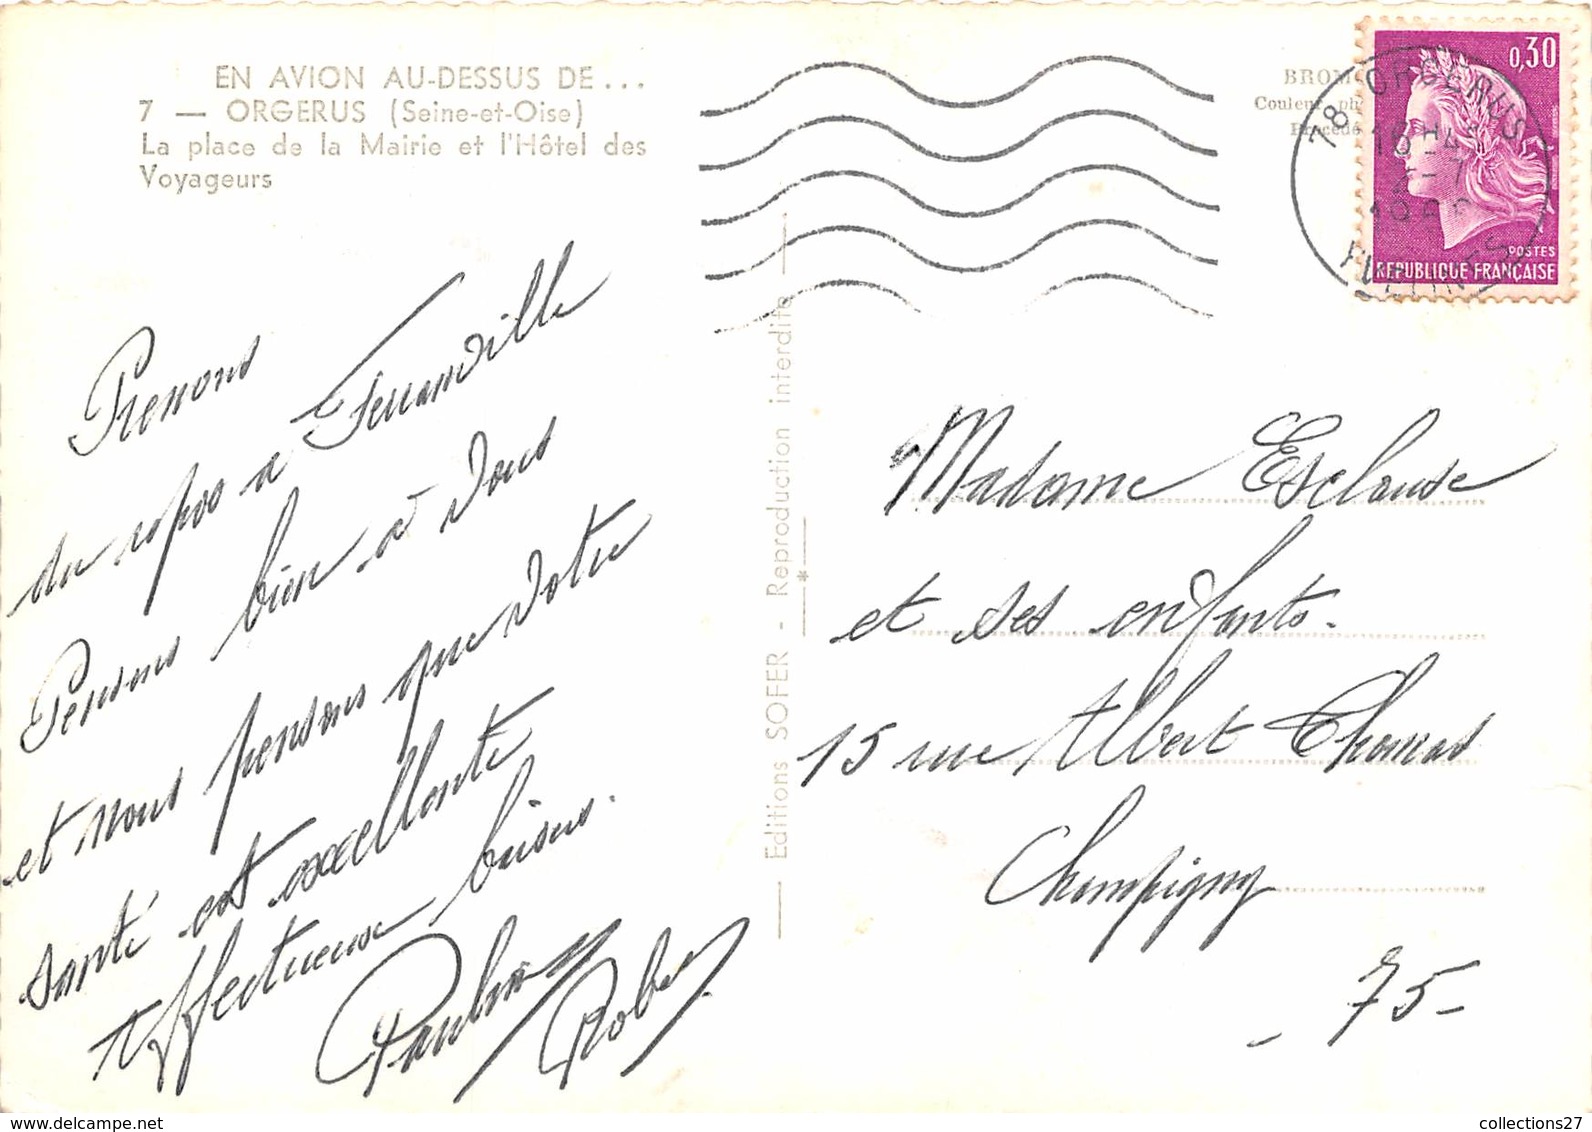 EN AVION AU-DESSUS DE...
7 — ORGERUS (Seine-et-Oise)
La place de la Mairie et l'Hôtel des
Voyageurs
Prenons
du repos à
Pensons bien à Vous
et nous pensons que Votre
santé est excellente
Affectueuse bises.
Robert
Editions SOFER - Reproduction interdite
*
BROM
Couleur
Procédé
0,30
POSTES
REPUBLIQUE FRANÇAISE
78 ORGERUS
YVELINES
Madame Esclause
et ses enfants.
15 rue Albert Thomas
Champigny
- 75 -
collections27